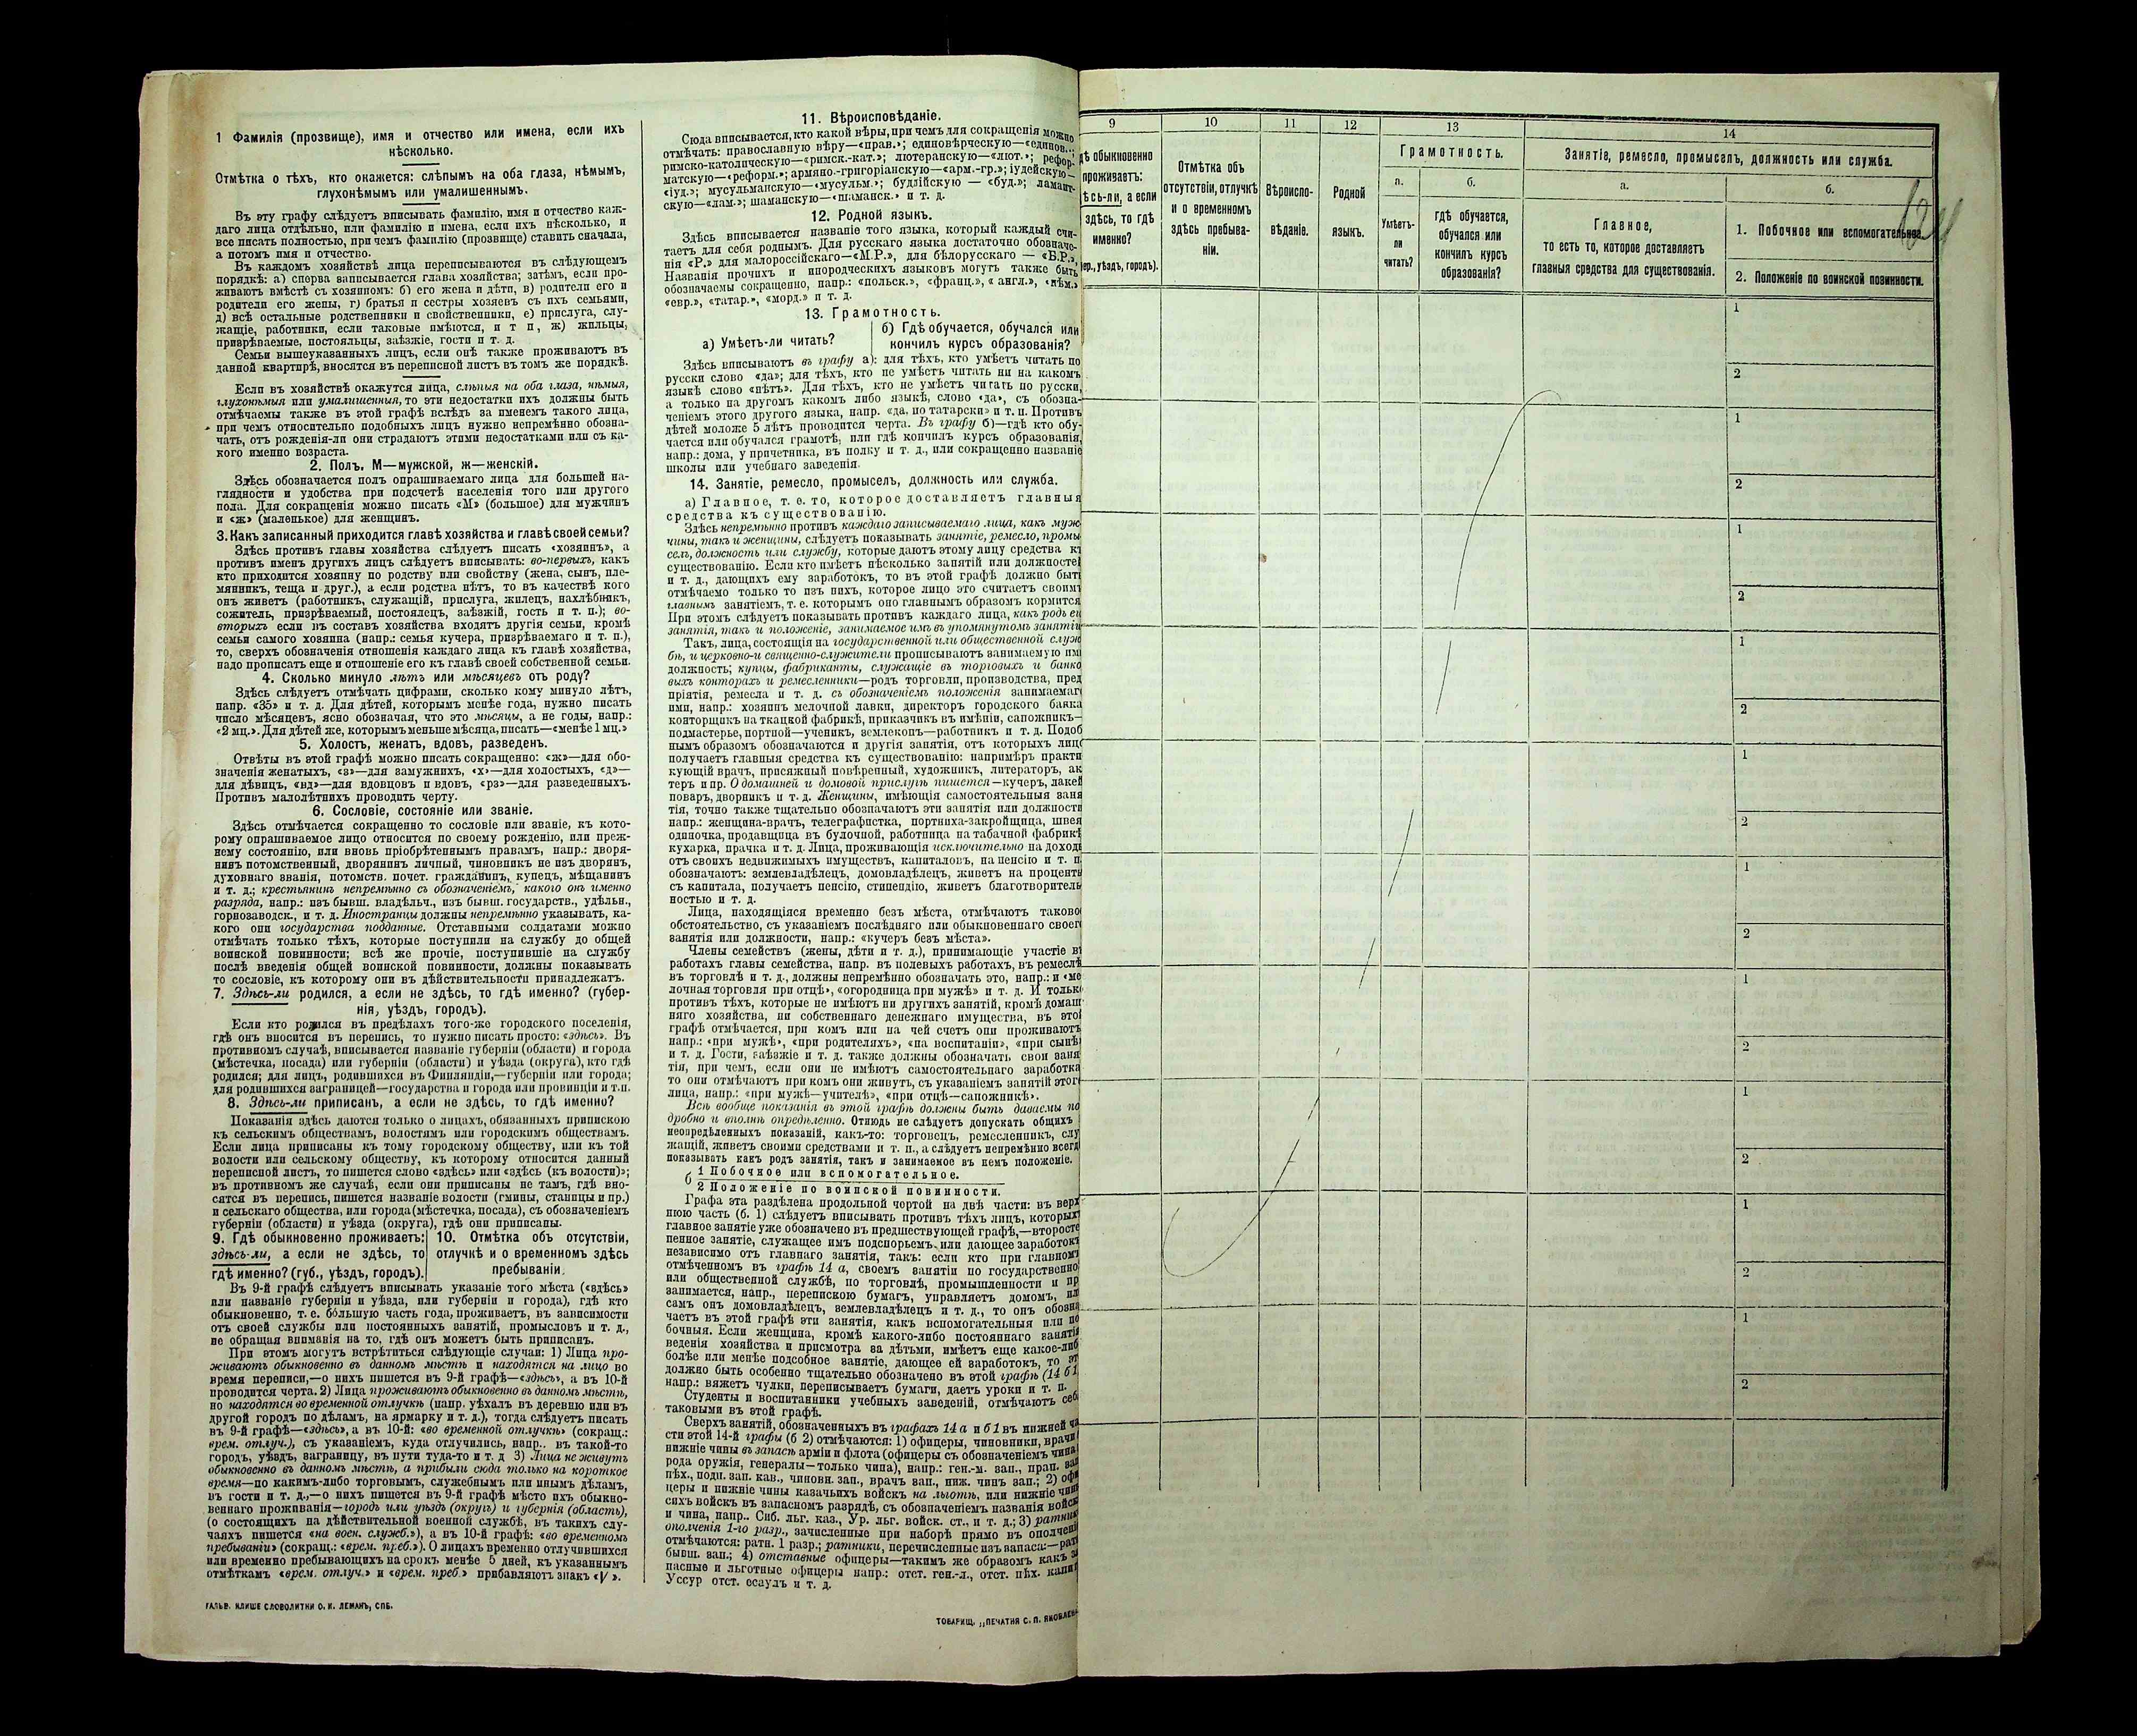 1 Фамилія (прозвище), имя и отчество или имена, если ихъ
нѣсколько.
Отмѣтка о тѣхъ, кто окажется: слѣпымъ на оба глаза, нѣмымъ,
глухонѣмымъ или умалишеннымъ.
Въ эту графу слѣдуетъ вписывать фамилію, имя и отчество каж-
даго лица отдѣльно, или фамилію и имена, если ихъ нѣсколько, и
все писать полностью, при чемъ фамилію (прозвище) ставить сначала,
а потомъ имя и отчество.
Въ каждомъ хозяйствѣ лица переписываются въ слѣдующемъ
порядкѣ: а) сперва записывается глава хозяйства; затѣмъ, если про-
живаютъ вмѣстѣ съ хозяиномъ: б) его жена и дѣти, в) родители его и
родители его жены, г) братья и сестры хозяевъ съ ихъ семьями,
д) всѣ остальные родственники и свойственники, е) прислуга, слу-
жащіе, работники, если таковые имѣются, и т п, ж) жильцы,
призрѣваемые, постояльцы, заѣзжіе, гости и т. д.
Семьи вышеуказанныхъ лицъ, если онѣ также проживаютъ въ
данной квартирѣ, вносятся въ переписной листъ въ томъ же порядкѣ.
Если въ хозяйствѣ окажутся лица, слѣпыя на оба глаза, нѣмыя,
глухонѣмыя или умалишенныя, то эти недостатки ихъ должны быть
отмѣчаемы также въ этой графѣ вслѣдъ за именемъ такого лица,
при чемъ относительно подобныхъ лицъ нужно непремѣнно обозна-
чать, отъ рожденія-ли они страдаютъ этими недостатками или съ ка-
кого именно возраста.
2. Полъ. М—мужской, ж—женскій.
Здѣсь обозначается полъ опрашиваемаго лица для большей на-
глядности и удобства при подсчетѣ населенія того или другого
пола. Для сокращенія можно писать «М» (большое) для мужчинъ
и «ж» (маленькое) для женщинъ.
3. Какъ записанный приходится главѣ хозяйства и главѣ своей семьи?
Здѣсь противъ главы хозяйства слѣдуетъ писать «хозяинъ», а
противъ именъ другихъ лицъ слѣдуетъ вписывать: во-первыхъ, какъ
кто приходится хозяину по родству или свойству (жена, сынъ, пле-
мянникъ, теща и друг.), а если родства нѣтъ, то въ качествѣ кого
онъ живетъ (работникъ, служащій, прислуга, жилецъ, нахлѣбникъ,
сожитель, призрѣваемый, постоялецъ, заѣзжій, гость и т. п.); во-
вторыхъ если въ составъ хозяйства входятъ другія семьи, кромѣ
семьи самого хозяина (напр: семья кучера, призрѣваемаго и т. п.),
то, сверхъ обозначенія отношенія каждаго лица къ главѣ хозяйства,
надо прописать еще и отношеніе его къ главѣ своей собственной семьи.
4. Сколько минуло лѣтъ или мѣсяцевъ отъ роду?
Здѣсь слѣдуетъ отмѣчать цифрами, сколько кому минуло лѣтъ,
напр. «35» и т. д. Для дѣтей, которымъ менѣе года, нужно писать
число мѣсяцевъ, ясно обозначая, что это мѣсяцы, а не годы, напр.:
«2 мц.». Для дѣтей же, которымъ меньше мѣсяца, писать—«менѣе 1 мц.»
5. Холостъ, женатъ, вдовъ, разведенъ.
Отвѣты въ этой графѣ можно писать сокращенно: «ж»—для обо-
значенія женатыхъ, «з»—для замужнихъ, «х»—для холостыхъ, «д»—
для дѣвицъ, «вд»—для вдовцовъ и вдовъ, «рз»—для разведенныхъ.
Противъ малолѣтнихъ проводить черту.
6. Сословіе, состояніе или званіе.
Здѣсь отмѣчается сокращенно то сословіе или званіе, къ кото-
рому опрашиваемое лицо относится по своему рожденію, или преж-
нему состоянію, или вновь пріобрѣтеннымъ правамъ, напр.: дворя-
нинъ потомственный, дворянинъ личный, чиновникъ не изъ дворянъ,
духовнаго званія, потомств. почет. гражданинъ, купецъ, мѣщанинъ
и т. д.; крестьянинъ непремѣнно съ обозначеніемъ, какого онъ именно
разряда, напр.: изъ бывш. владѣльч., изъ бывш. государств., удѣльн.,
горнозаводск., и т. д. Иностранцы должны непремѣнно указывать, ка-
кого они государства подданные. Отставными солдатами можно
отмѣчать только тѣхъ, которые поступили на службу до общей
воинской повинности; всѣ же прочіе, поступившіе на службу
послѣ введенія общей воинской повинности, должны показывать
то сословіе, къ которому они въ дѣйствительности принадлежатъ.
7. Здѣсь-ли родился, а если не здѣсь, то гдѣ именно? (губер-
нія, уѣздъ, городъ).
Если кто родился въ предѣлахъ того-же городского поселенія,
гдѣ онъ вносится въ перепись, то нужно писать просто: «здѣсь». Въ
противномъ случаѣ, вписывается названіе губерніи (области) и города
(мѣстечка, посада) или губерніи (области) и уѣзда (округа), кто гдѣ
родился; для лицъ, родившихся въ Финляндіи,—губерніи или города;
для родившихся заграницей—государства и города или провинціи и т.п.
8. Здѣсь-ли приписанъ, а если не здѣсь, то гдѣ именно?
Показанія здѣсь даются только о лицахъ, обязанныхъ припискою
къ сельскимъ обществамъ, волостямъ или городскимъ обществамъ.
Если лица приписаны къ тому городскому обществу, или къ той
волости или сельскому обществу, къ которому относится данный
переписной листъ, то пишется слово «здѣсь» или «здѣсь (къ волости)»;
въ противномъ же случаѣ, если они приписаны не тамъ, гдѣ вно-
сятся въ перепись, пишется названіе волости (гмины, станицы и пр.)
и сельскаго общества, или города (мѣстечка, посада), съ обозначеніемъ
губерніи (области) и уѣзда (округа), гдѣ они приписаны.
9. Гдѣ обыкновенно проживаетъ:
здѣсь-ли, а если не здѣсь, то
гдѣ именно? (губ., уѣздъ, городъ).
10. Отмѣтка объ отсутствіи,
отлучкѣ и о временномъ здѣсь
пребываніи.
Въ 9-й графѣ слѣдуетъ вписывать указаніе того мѣста («здѣсь»
или названіе губерніи и уѣзда, или губерніи и города), гдѣ кто
обыкновенно, т. е. бо́льшую часть года, проживаетъ, въ зависимости
отъ своей службы или постоянныхъ занятій, промысловъ и т. д.,
не обращая вниманія на то, гдѣ онъ можетъ быть приписанъ.
При этомъ могутъ встрѣтиться слѣдующіе случаи: 1) Лица про-
живаютъ обыкновенно въ данномъ мѣстѣ и находятся на лицо во
время переписи,—о нихъ пишется въ 9-й графѣ—«здѣсь», а въ 10-й
проводится черта. 2) Лица проживаютъ обыкновенно въ данномъ мѣстѣ,
но находятся во временной отлучкѣ (напр. уѣхалъ въ деревню или въ
другой городъ по дѣламъ, на ярмарку и т. д.), тогда слѣдуетъ писать
въ 9-й графѣ—«здѣсь», а въ 10-й: «во временной отлучкѣ» (сокращ.:
врем. отлуч.), съ указаніемъ, куда отлучились, напр.. въ такой-то
городъ, уѣздъ, заграницу, въ пути туда-то и т. д 3) Лица не живутъ
обыкновенно въ данномъ мѣстѣ, а прибыли сюда только на короткое
время—по какимъ-либо торговымъ, служебнымъ или инымъ дѣламъ,
въ гости и т. д.,—о нихъ пишется въ 9-й графѣ мѣсто ихъ обыкно-
веннаго проживанія—городъ или уѣздъ (округъ) и губернія (область),
(о состоящихъ на дѣйствительной военной службѣ, въ такихъ слу-
чаяхъ пишется «на воен. служб.»), а въ 10-й графѣ: «во временномъ
пребываніи» (сокращ.: «врем. преб.»). О лицахъ временно отлучившихся
или временно пребывающихъ на срокъ менѣе 5 дней, къ указаннымъ
отмѣткамъ «врем. отлуч.» и «врем. преб.» прибавляютъ знакъ «V».
ГАЛЬВ. КЛИШЕ СЛОВОЛИТНИ О. И. ЛЕМАНЪ, СПБ.
11. Вѣроисповѣданіе.
Сюда вписывается, кто какой вѣры, при чемъ для сокращенія можно
отмѣчать: православную вѣру—«прав.»; единовѣрческую—«единов.»;
римско-католическую—«римск.-кат.»; лютеранскую—«лют.»; рефор-
матскую—«реформ.»; армяно.-григоріанскую—«арм.-гр.»; іудейскую—
«іуд.»; мусульманскую—«мусульм.»; буддійскую — «буд.»; ламаит-
скую—«лам.»; шаманскую—«шаманск.» и т. д.
12. Родной языкъ.
Здѣсь вписывается названіе того языка, который каждый счи-
таетъ для себя роднымъ. Для русскаго языка достаточно обозначе-
нія «Р.» для малороссійскаго—«М.Р.», для бѣлорусскаго — «Б.Р.»,
Названія прочихъ и инородческихъ языковъ могутъ также быть
обозначаемы сокращенно, напр.: «польск.», «франц.», «англ.», «нѣм.»
«евр.», «татар.», «морд.» и т. д.
13. Грамотность.
а) Умѣетъ-ли читать?
б) Гдѣ обучается, обучался или
кончилъ курсъ образованія?
Здѣсь вписываютъ въ графу а): для тѣхъ, кто умѣетъ читать по
русски слово «да»; для тѣхъ, кто не умѣетъ читать ни на какомъ
языкѣ слово «нѣтъ». Для тѣхъ, кто не умѣетъ читать по русски,
а только на другомъ какомъ либо языкѣ, слово «да», съ обозна-
ченіемъ этого другого языка, напр. «да, по татарски» и т. п. Противъ
дѣтей моложе 5 лѣтъ проводится черта. Въ графу б)—гдѣ кто обу-
чается или обучался грамотѣ, или гдѣ кончилъ курсъ образованія,
напр.: дома, у причетника, въ полку и т. д., или сокращенно названіе
школы или учебнаго заведенія.
14. Занятіе, ремесло, промыселъ, должность или служба.
а) Главное, т. е. то, которое доставляетъ главныя
средства къ существованію.
Здѣсь непремѣнно противъ каждаго записываемаго лица, какъ муж-
чины, такъ и женщины, слѣдуетъ показывать занятіе, ремесло, промы
селъ, должность или службу, которые даютъ этому лицу средства къ
существованію. Если кто имѣетъ нѣсколько занятій или должностей
и т. д., дающихъ ему заработокъ, то въ этой графѣ должно быть
отмѣчаемо только то изъ нихъ, которое лицо это считаетъ своимъ
главнымъ занятіемъ, т. е. которымъ оно главнымъ образомъ кормится
При этомъ слѣдуетъ показывать противъ каждаго лица, какъ родъ ег
занятія, такъ и положеніе, занимаемое имъ въ упомянутомъ занятіи
Такъ, лица, состоящія на государственной или общественной служ
бѣ, и церковно-и священно-служители прописываютъ занимаемую им
должность; купцы, фабриканты, служащіе въ торговыхъ и банко
выхъ конторахъ и ремесленники—родъ торговли, производства, пред
пріятія, ремесла и т. д. съ обозначеніемъ положенія занимаемаг
ими, напр.: хозяинъ мелочной лавки, директоръ городского банка
конторщикъ на ткацкой фабрикѣ, приказчикъ въ имѣніи, сапожникъ—
подмастерье, портной—ученикъ, землекопъ—работникъ и т. д. Подоб
нымъ образомъ обозначаются и другія занятія, отъ которыхъ лицо
получаетъ главныя средства къ существованію: напримѣръ практи
кующій врачъ, присяжный повѣренный, художникъ, литераторъ, ак
теръ и пр. О домашней и домовой прислугѣ пишется—кучеръ, лакей
поваръ, дворникъ и т. д. Женщины, имѣющія самостоятельныя заня
тія, точно также тщательно обозначаютъ эти занятія или должности
напр.: женщина-врачъ, телеграфистка, портниха-закройщица, швея
одиночка, продавщица въ булочной, работница на табачной фабрикѣ
кухарка, прачка и т. д. Лица, проживающія исключительно на доходы
отъ своихъ недвижимыхъ имуществъ, капиталовъ, на пенсію и т. п.
обозначаютъ: землевладѣлецъ, домовладѣлецъ, живетъ на проценты
съ капитала, получаетъ пенсію, стипендію, живетъ благотворитель
ностью и т. д.
Лица, находящіяся временно безъ мѣста, отмѣчаютъ таково
обстоятельство, съ указаніемъ послѣдняго или обыкновеннаго своег
занятія или должности, напр.: «кучеръ безъ мѣста».
Члены семействъ (жены, дѣти и т. д.), принимающіе участіе въ
работахъ главы семейства, напр. въ полевыхъ работахъ, въ ремеслѣ
въ торговлѣ и т. д., должны непремѣнно обозначать это, напр.: и «ме
лочная торговля при отцѣ», «огородница при мужѣ» и т. д. И только
противъ тѣхъ, которые не имѣютъ ни другихъ занятій, кромѣ домаш
няго хозяйства, ни собственнаго денежнаго имущества, въ этой
графѣ отмѣчается, при комъ или на чей счетъ они проживаютъ
напр.: «при мужѣ», «при родителяхъ», «на воспитаніи», «при сынѣ»
и т. д. Гости, заѣзжіе и т. д. также должны обозначать свои заня
тія, при чемъ, если они не имѣютъ самостоятельнаго заработка
то они отмѣчаютъ при комъ они живутъ, съ указаніемъ занятій этого
лица, напр.: «при мужѣ—учителѣ», «при отцѣ—сапожникѣ».
Всѣ вообще показанія въ этой графѣ должны быть даваемы по
дробно и вполнѣ опредѣленно. Отнюдь не слѣдуетъ допускать общихъ
неопредѣленныхъ показаній, какъ-то: торговецъ, ремесленникъ, слу
жащій, живетъ своими средствами и т. п., а слѣдуетъ непремѣнно всегд
показывать какъ родъ занятія, такъ и занимаемое въ немъ положеніе.
б 1 Побочное или вспомогательное.
2 Положеніе по воинской повинности.
Графа эта раздѣлена продольной чертой на двѣ части: въ верх
нюю часть (б. 1) слѣдуетъ вписывать противъ тѣхъ лицъ, которыхъ
главное занятіе уже обозначено въ предшествующей графѣ,—второсте
пенное занятіе, служащее имъ подспорьемъ или дающее заработокъ
независимо отъ главнаго занятія, такъ: если кто при главномъ
отмѣченномъ въ графѣ 14 а, своемъ занятіи по государственно
или общественной службѣ, по торговлѣ, промышленности и пр
занимается, напр., перепискою бумагъ, управляетъ домомъ, ил
самъ онъ домовладѣлецъ, землевладѣлецъ и т. д., то онъ обозна
чаетъ въ этой графѣ эти занятія, какъ вспомогательныя или по
бочныя. Если женщина, кромѣ какого-либо постояннаго занятія
веденія хозяйства и присмотра за дѣтьми, имѣетъ еще какое-либ
болѣе или менѣе подсобное занятіе, дающее ей заработокъ, то эт
должно быть особенно тщательно обозначено въ этой графѣ (14 б 1
напр.: вяжетъ чулки, переписываетъ бумаги, даетъ уроки и т. п.
Студенты и воспитанники учебныхъ заведеній, отмѣчаютъ себ
таковыми въ этой графѣ.
Сверхъ занятій, обозначенныхъ въ графахъ 14 а и б 1 въ нижней ча
сти этой 14-й графы (б 2) отмѣчаются: 1) офицеры, чиновники, врачи
нижніе чины въ запасѣ арміи и флота (офицеры съ обозначеніемъ чина
рода оружія, генералы—только чина), напр.: ген.-м. зап., прап. зап
пѣх., подп. зап. кав., чиновн. зап., врачъ зап., ниж. чинъ зап.; 2) офи
церы и нижніе чины казачьихъ войскъ на льготѣ, или нижніе чин
сихъ войскъ въ запасномъ разрядѣ, съ обозначеніемъ названія войск
и чина, напр.. Сиб. льг. каз., Ур. льг. войск. ст., и т. д.; 3) ратник
ополченія 1-го разр., зачисленные при наборѣ прямо въ ополчені
отмѣчаются: ратн. 1 разр.; ратники, перечисленные изъ запаса:—рат
бывш. зап.; 4) отставные офицеры—такимъ же образомъ какъ за
пасные и льготные офицеры напр.: отст. ген.-л., отст. пѣх. капит
Уссур отст. есаулъ и т. д.
ТОВАРИЩ. „ПЕЧАТНЯ С. П. ЯКОВЛЕВА
9
10
11
12
13
14
дѣ обыкновенно
проживаетъ:
ѣсь-ли, а если
здѣсь, то гдѣ
именно?
бер., уѣздъ, городъ).
Отмѣтка объ
отсутствіи, отлучкѣ
и о временномъ
здѣсь пребыва-
ніи.
Вѣроиспо-
вѣданіе.
Родной
языкъ.
Грамотность.
а.
Умѣетъ-
ли
читать?
б.
гдѣ обучается,
обучался или
кончилъ курсъ
образованія?
Занятіе, ремесло, промыселъ, должность или служба.
а.
Главное,
то есть то, которое доставляетъ
главныя средства для существованія.
б.
1. Побочное или вспомогательное.
2. Положеніе по воинской повинности.
1
2
1
2
1
2
1
2
1
2
1
2
1
2
1
2
1
2
1
2